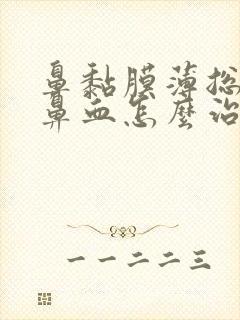 鼻黏膜薄总
鼻血怎麼治
一一二二三